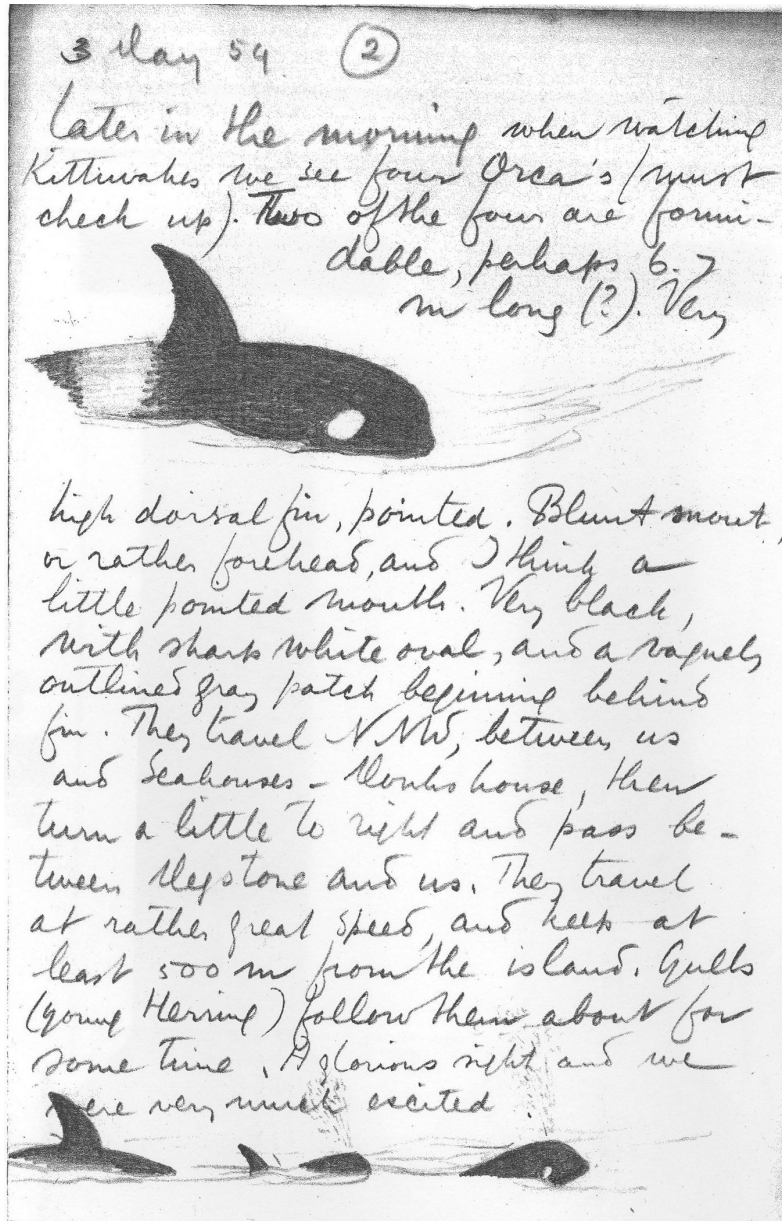 3 May 54 2
Later in the morning when watching
Kittiwakes we see four Orca's (must
check up). Two of the four are formi-
dable, perhaps 6.7
m long (?). Very
high dorsal fin, pointed. Blunt snout,
or rather forehead, and I think a
little pointed mouth. Very black,
with sharp white oval, and a vaguely
outlined gray patch beginning behind
fin. They travel NNW, between us
and Seahouses - Monkshouse, then
turn a little to right and pass be-
tween Megstone and us. They travel
at rather great speed, and keep at
least 500 m from the island. Gulls
(young Herring) follow them about for
some time. A glorious sight and we
were very much excited